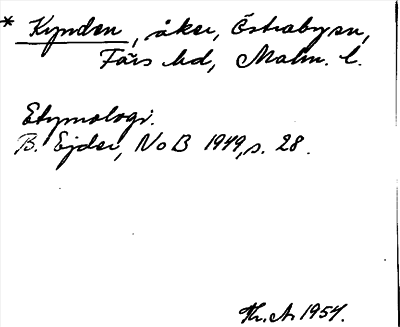 * Kynden, åker, Östrabyn,
Färs hd, Malm. l.
Etymologi.
B. Ejder, NoB 1949, s. 28.
Th. A. 1954.